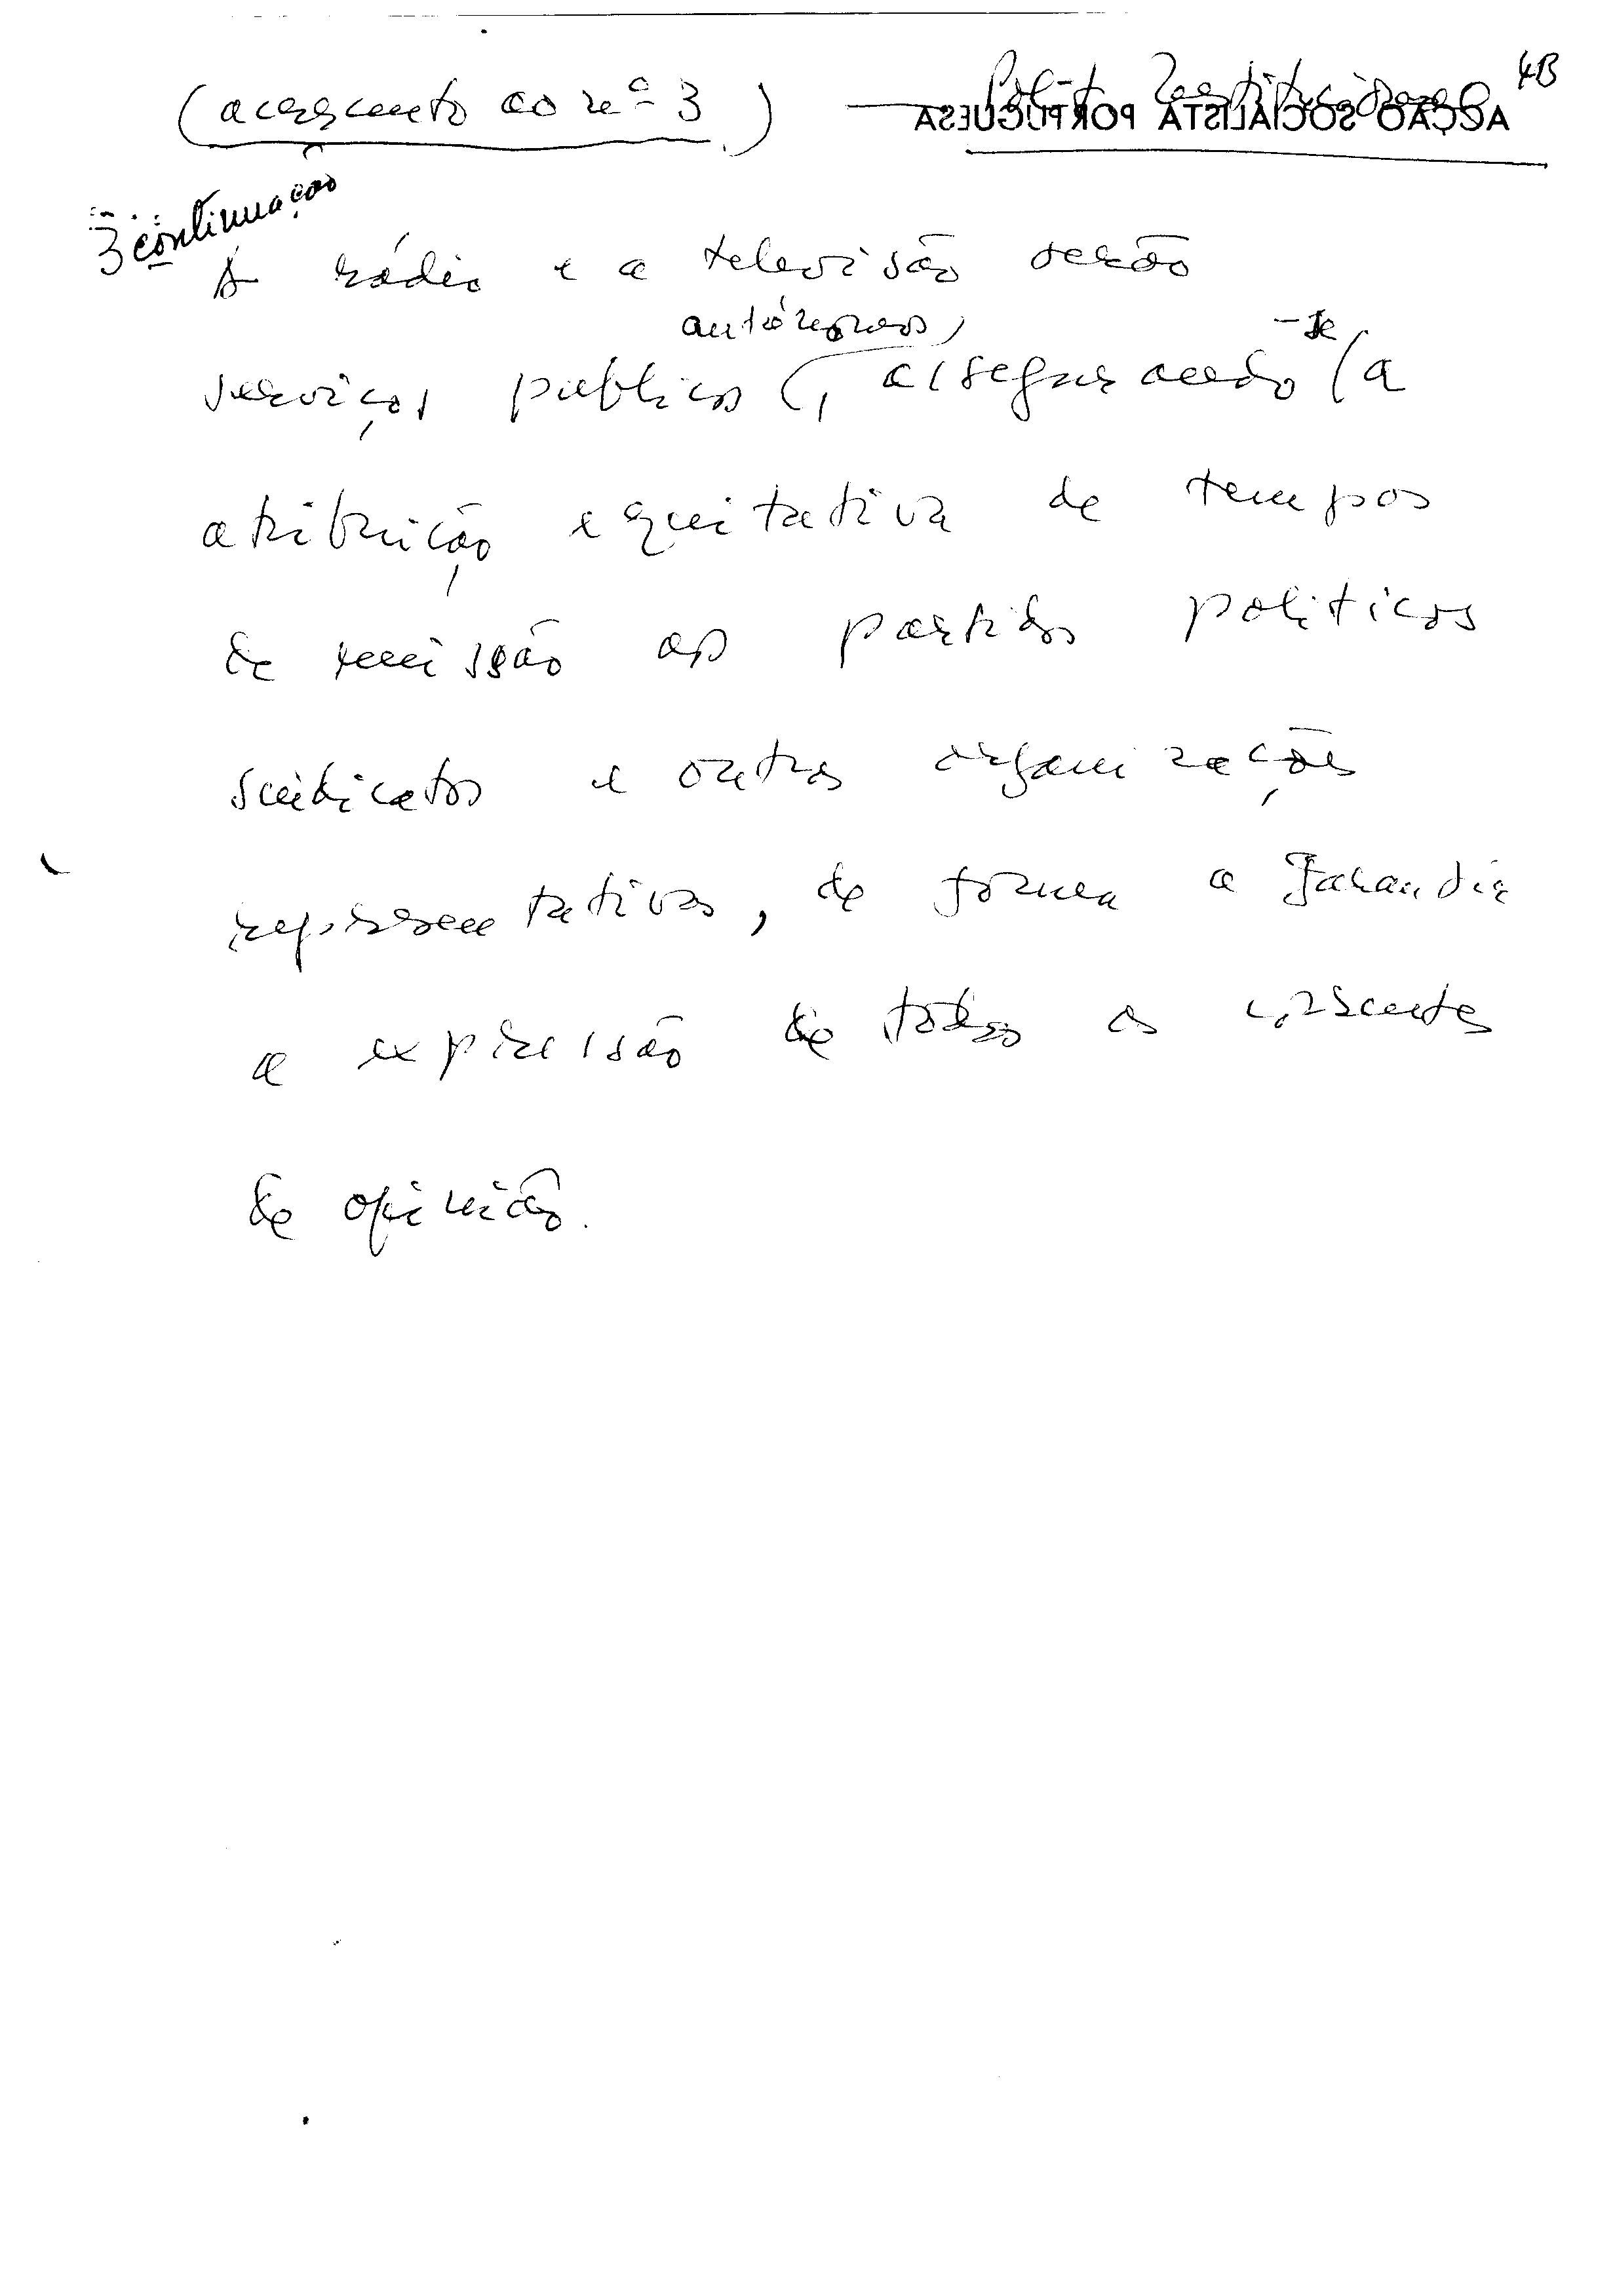 4B
(acrescento ao nº 3) — Polít. Institucional
ACÇÃO SOCIALISTA PORTUGUESA
3 continuação
A rádio e a televisão serão
autónomos, -se
serviços publicos, assegurando a
atribuição equitativa de tempos
de emissão aos partidos politicos
sindicatos e outras organizações
representativas, de forma a garantir
a expressão de todas as correntes
de opinião.